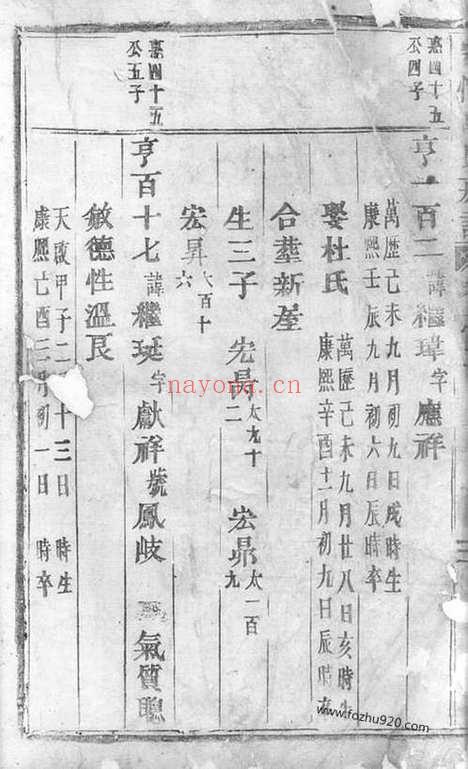 嘉四十五
公四子
亨一百二 諱繼瑋字應祥
萬歷己未九月初九日戌時生
康熙壬辰九月初六日辰時卒
娶杜氏
萬歷己未九月廿八日亥時生
康熙辛酉十二月初九日辰時卒
合塟新屋
生三子 宏長 太九十二 宏昴 太一百九
宏昇 太百十六
嘉四十五
公五子
亨百十七 諱繼珽字獻祥號鳳岐 氣質聰
敏德性溫艮
天啟甲子二月十三日 時生
康熙己酉三月初一日 時卒
nayona.cn
www.fozhu920.com